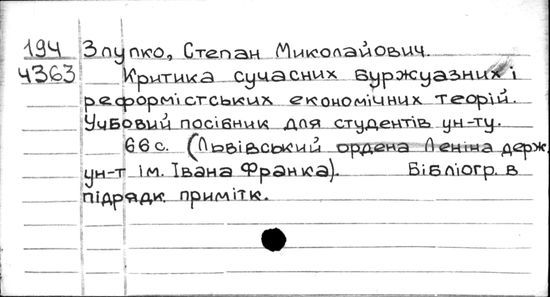 194 Злупко, Степан Миколайович.
4363 Критика сучасних буржуазних і
реформістських економічних теорій.
Учбовий посібник для студентів ун-ту.
66 с. (Львівський ордена Леніна держ.
ун-т ім. Івана Франка). Бібліогр. в
підрядк. примітк.